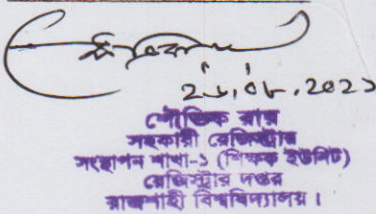 ২৬.০৮.২০২১
শৌভিক রায়
সহকারী রেজিস্ট্রার
সংস্থাপন শাখা-১ (শিক্ষক ইউনিট)
রেজিস্ট্রার দপ্তর
রাজশাহী বিশ্ববিদ্যালয়।